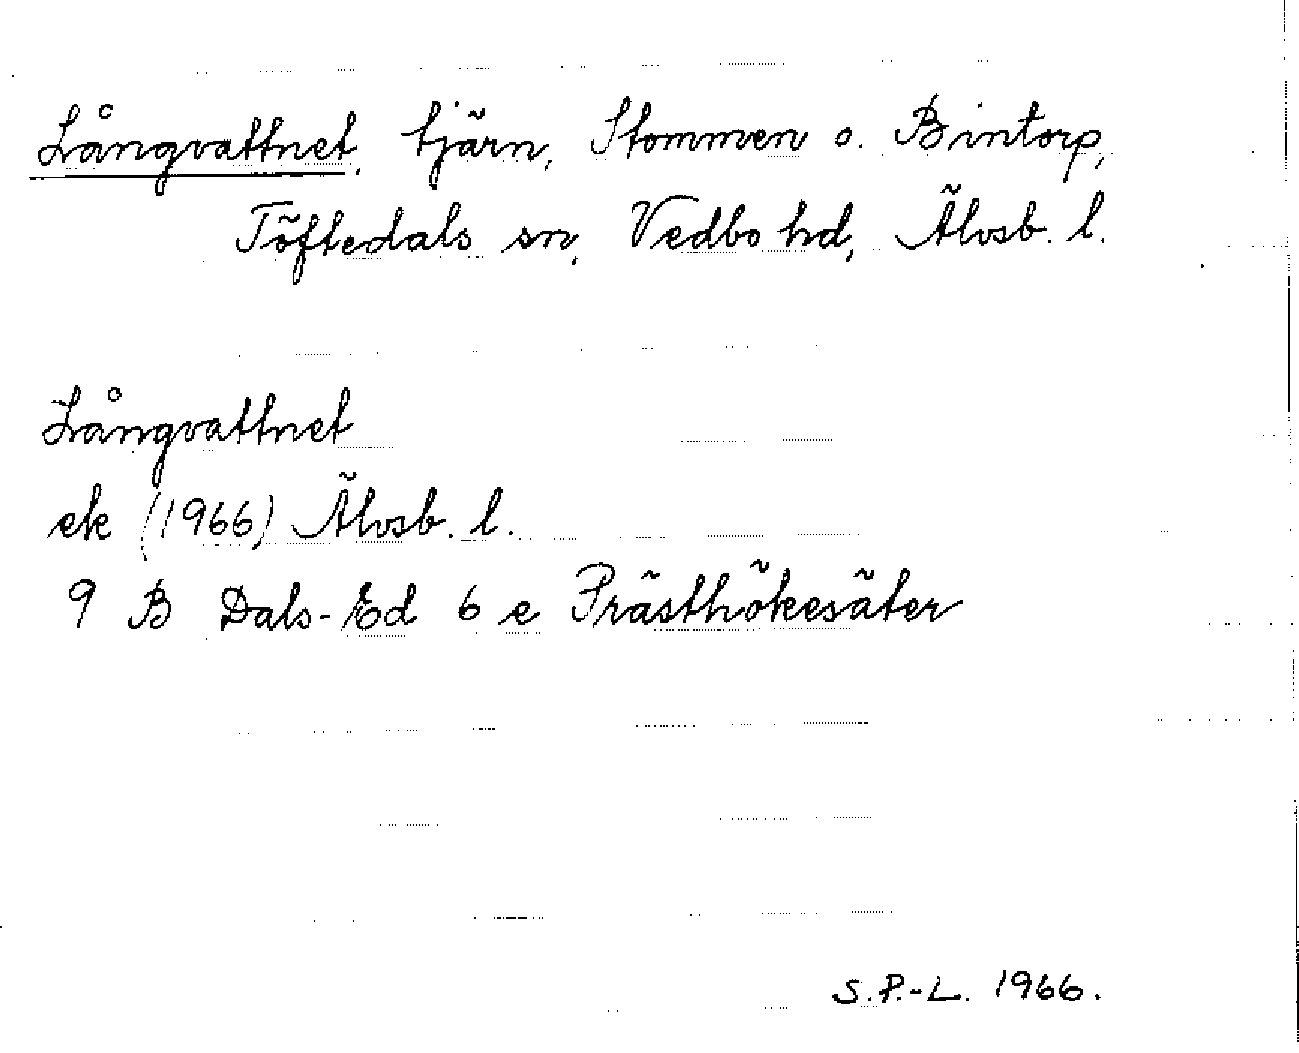 Långvattnet, tjärn, Stommen o. Bintorp,
Töftedals sn, Vedbo hd, Älvsb. l.
Långvattnet
ek (1966) Älvsb. l.
9 B Dals-Ed 6 e Prästhökesäter
S.P.-L. 1966.